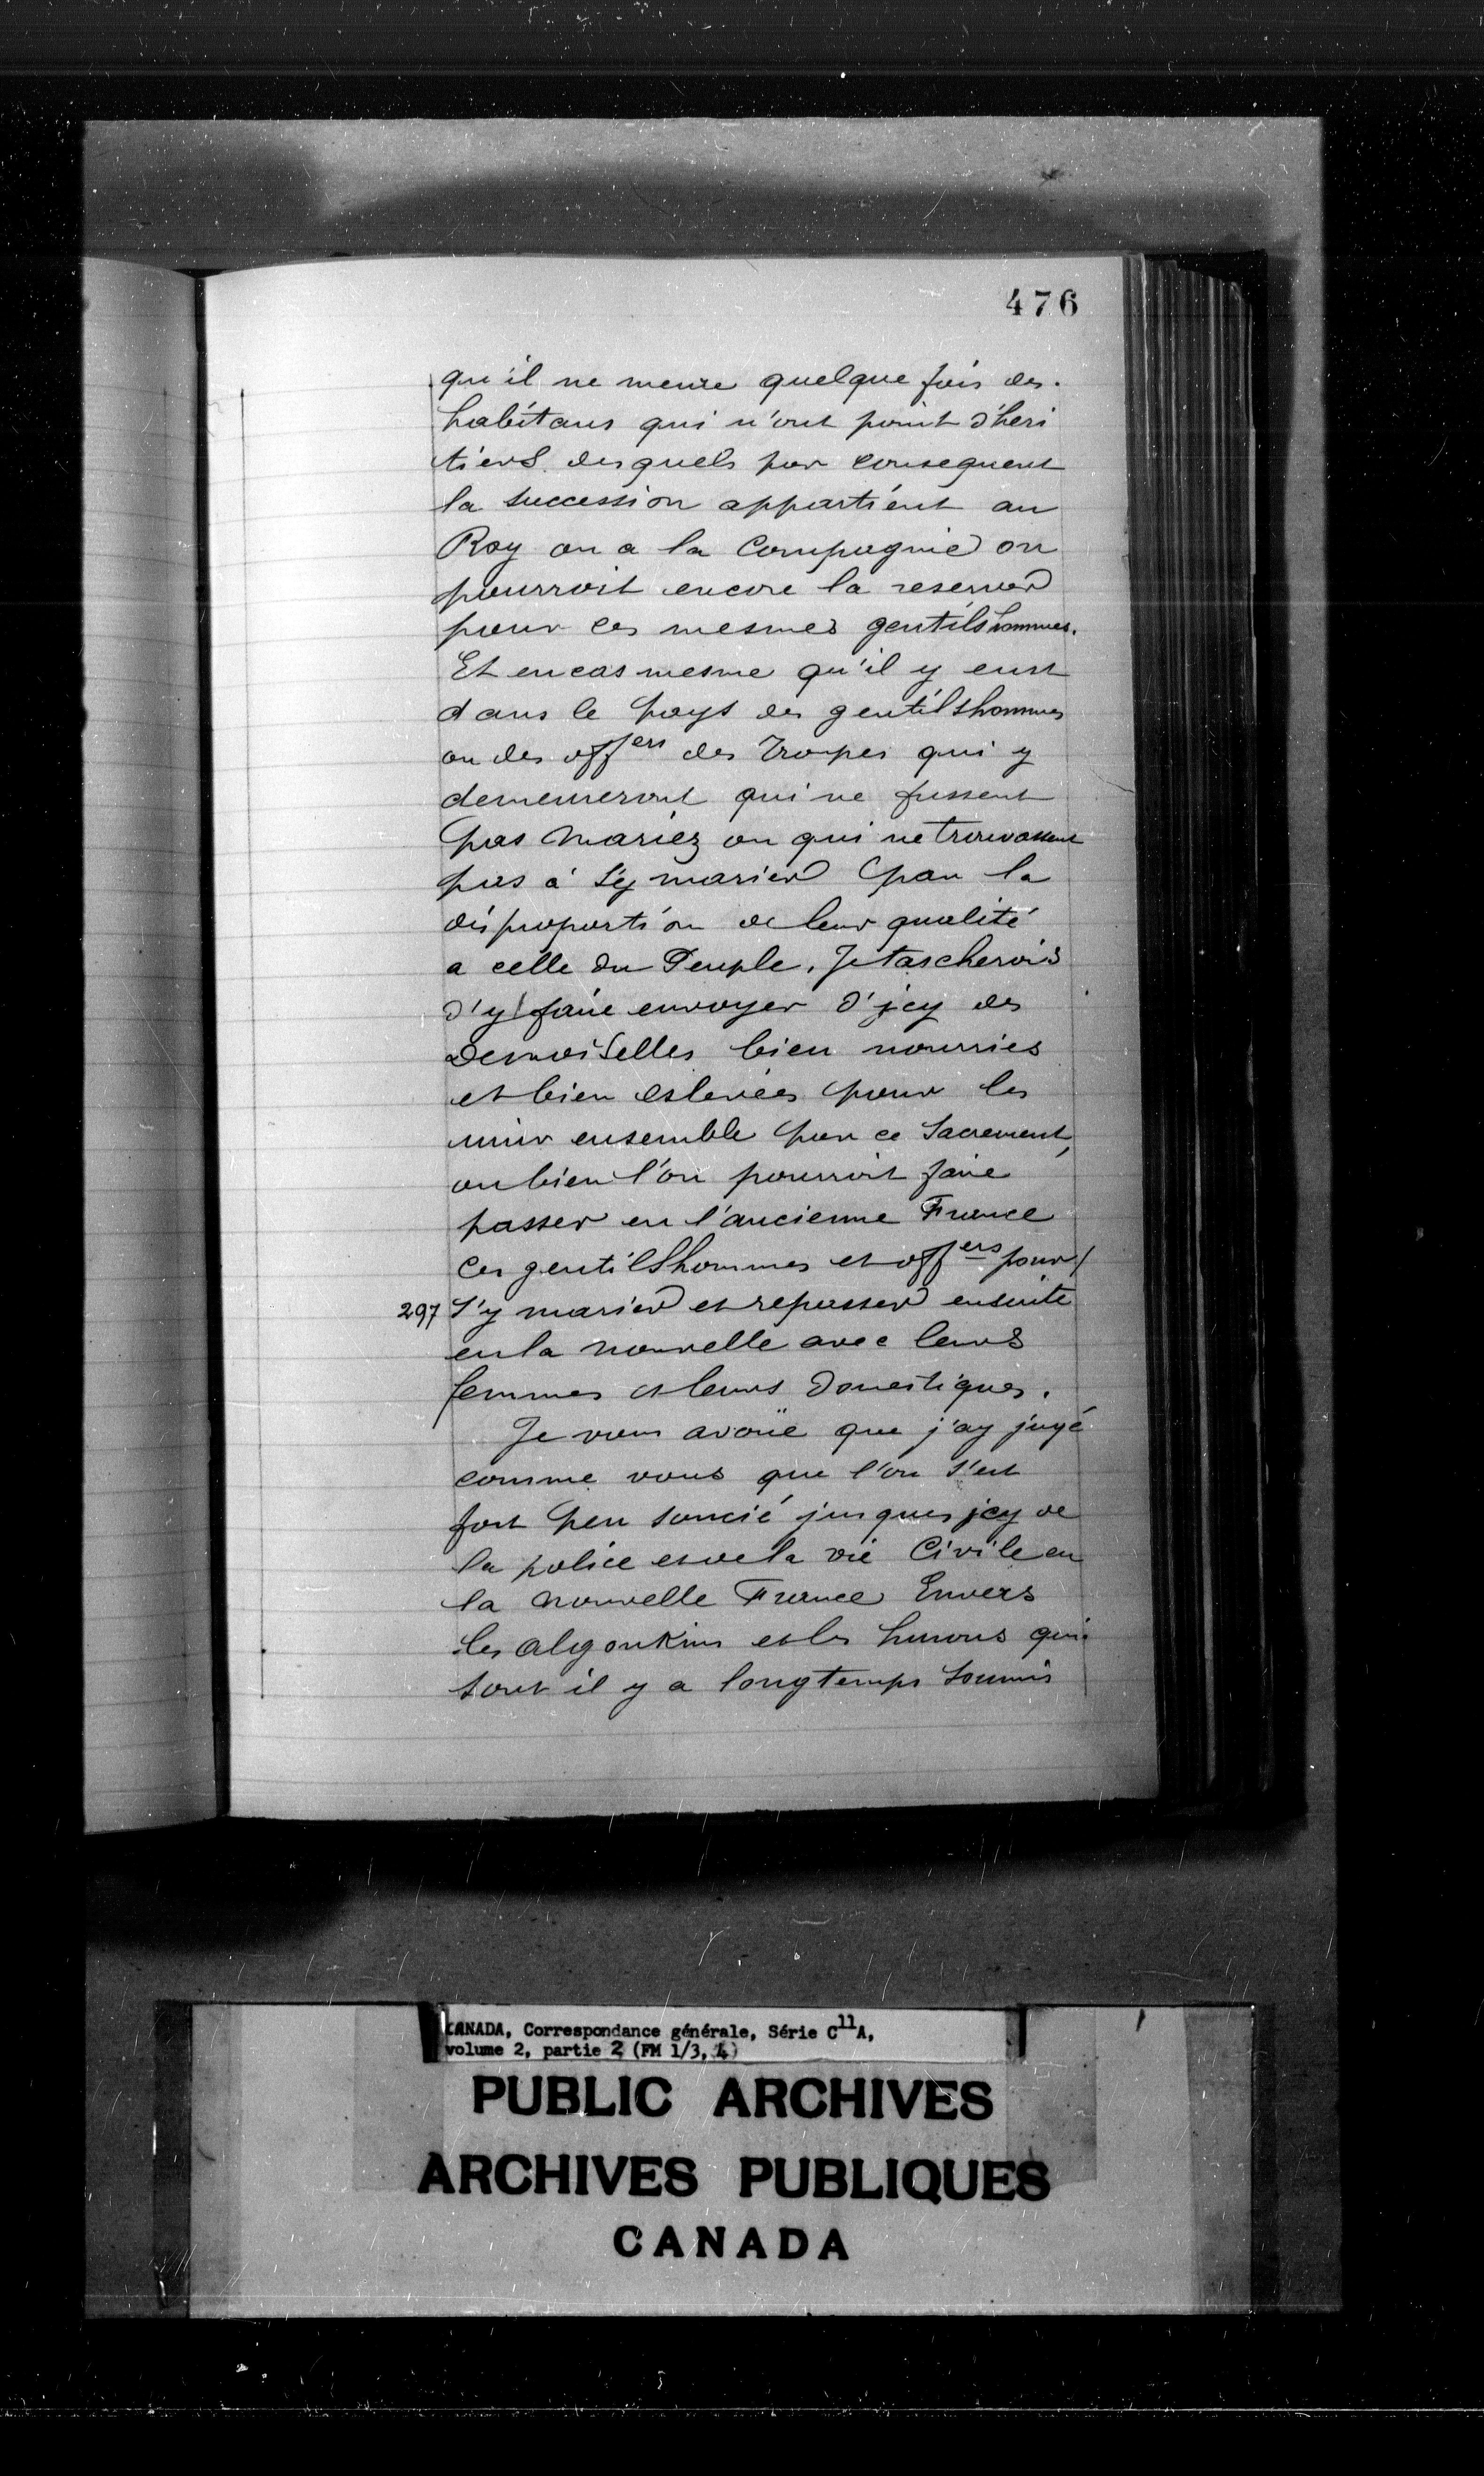 476
qu'il ne meure quelque fois des
habitans qui n'ont point d'heri
tierS desquels par consequent
la succession appartient au
Roy ou a la Compagnie on
pourroit encore la reserver
pour ces mesmes gentilshommes.
Et en cas mesme qu'il y eust
dans le pays des gentilshommes
ou des offers des Troupes qui y
demeureront qui ne fussent
pas Mariez ou qui ne trouvassent
pas à s'y marier par la
disproportion de leur qualité
a celle du Peuple, Je tascherois
d'y faire envoyer d'jcy des
DemoiSelles bien nourries
et bien eslevées pour les
unir ensemble par ce Sacrement,
ou bien l'on pourroit faire
passer en l'ancienne France
ces gentilShommes et offers pour/
297 s'y marier et repasser ensuite
en la nouvelle avec leurs
femmes et leurs domestiques.
Je vous avoüe que j'ay jugé
comme vous que l'on s'est
fort peu soucié jusques jcy de
la police et de la vie Civile en
la Nouvelle France Envers
les algonkins et les hurons qui
sont il y a longtemps soumis
CANADA, Correspondance générale, Série C11A,
volume 2, partie 2 (FM 1/3, 4)
PUBLIC ARCHIVES
ARCHIVES PUBLIQUES
CANADA